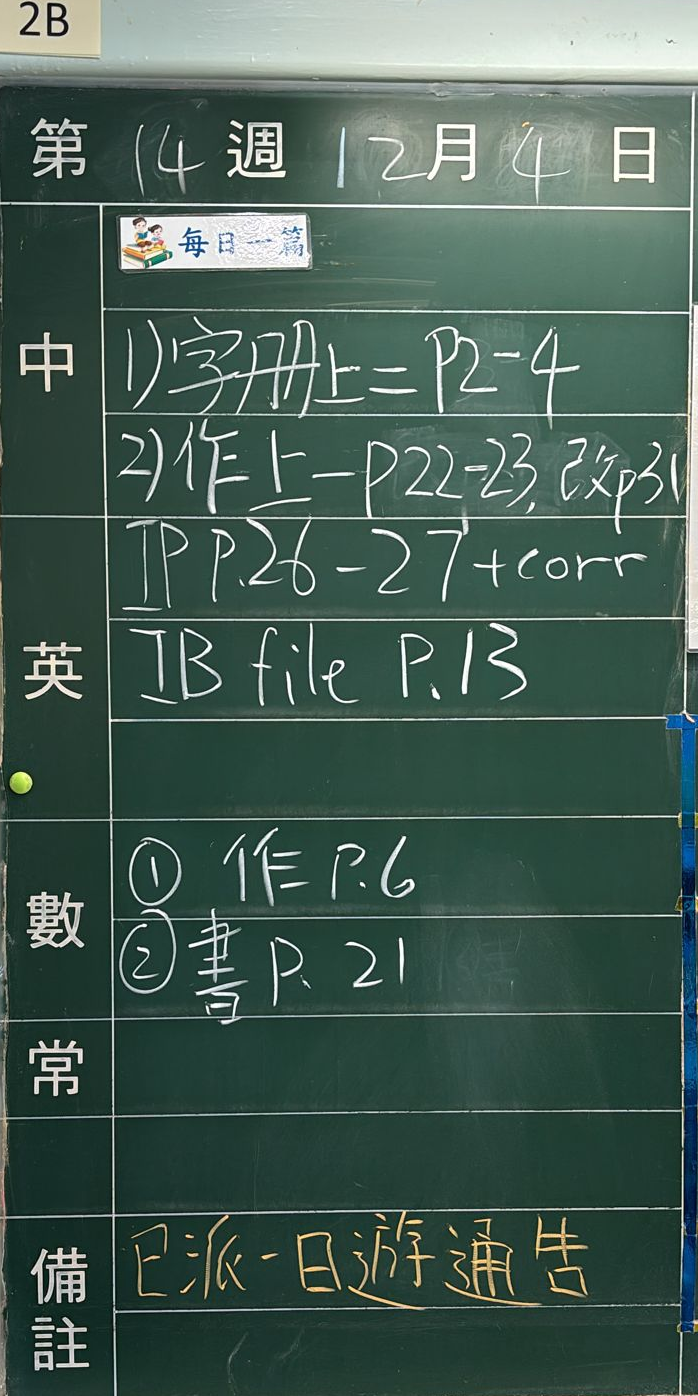 2B
第 14 週 12月 4 日
每日一篇
中
1)字册上=P2-4
2)作上-P22-23,改p31
IP P.26-27+corr
英
IB file P.13
數
① 作 P.6
② 書 P. 21
常
備註
已派一日遊通告